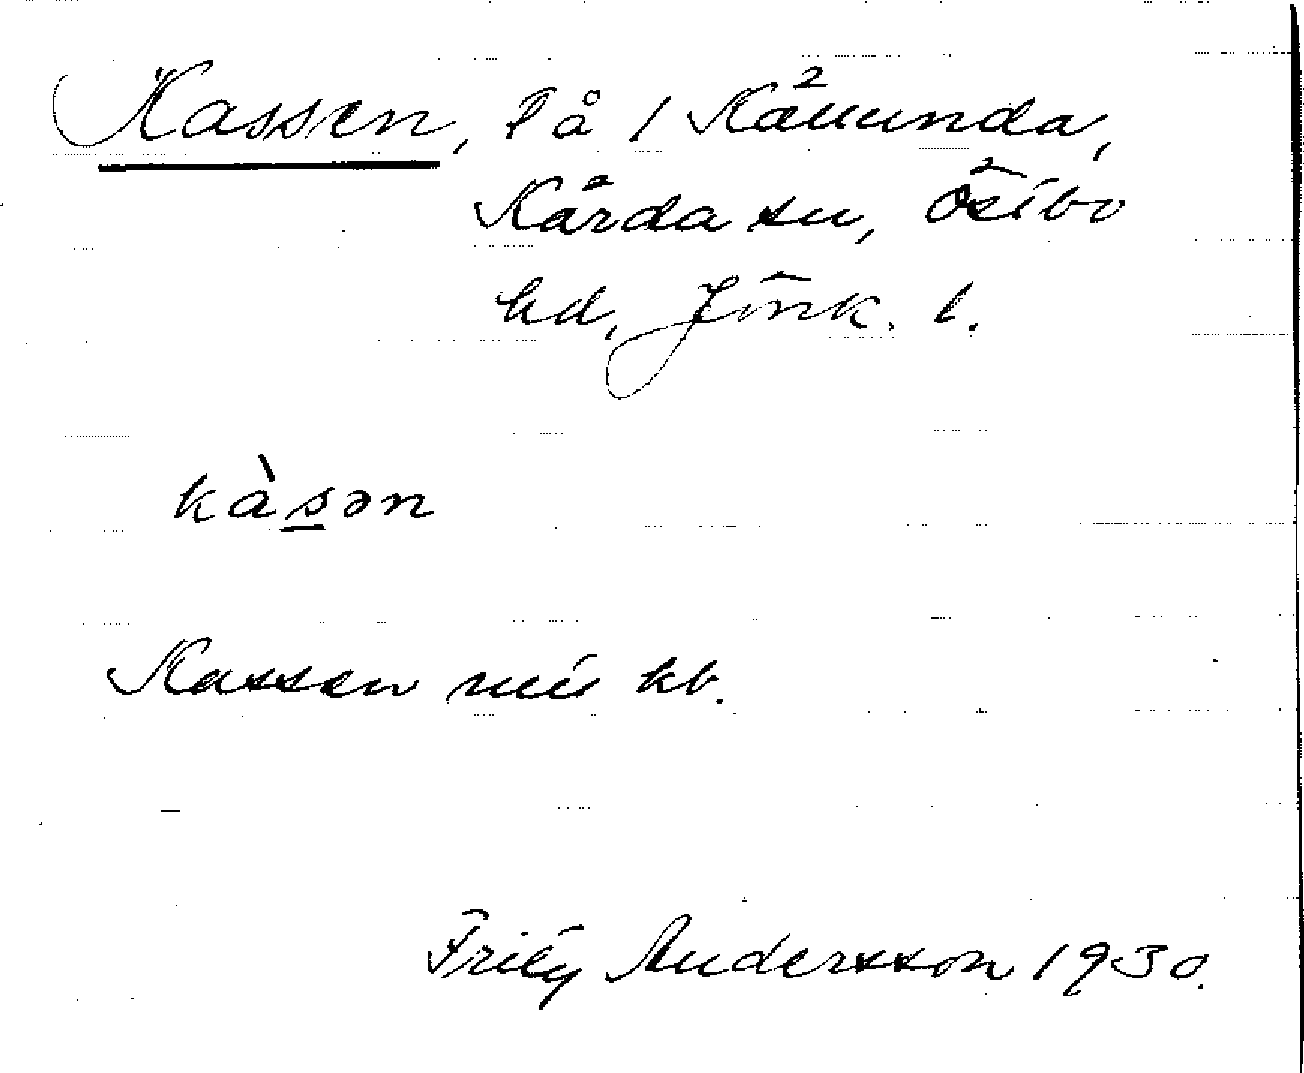 Kassen, l å 1 Kåmunda,
Kärda sn, Östbo
hd, Jönk. l.
kàsən
Kassen ms kb.
Fritz Andersson 1930.